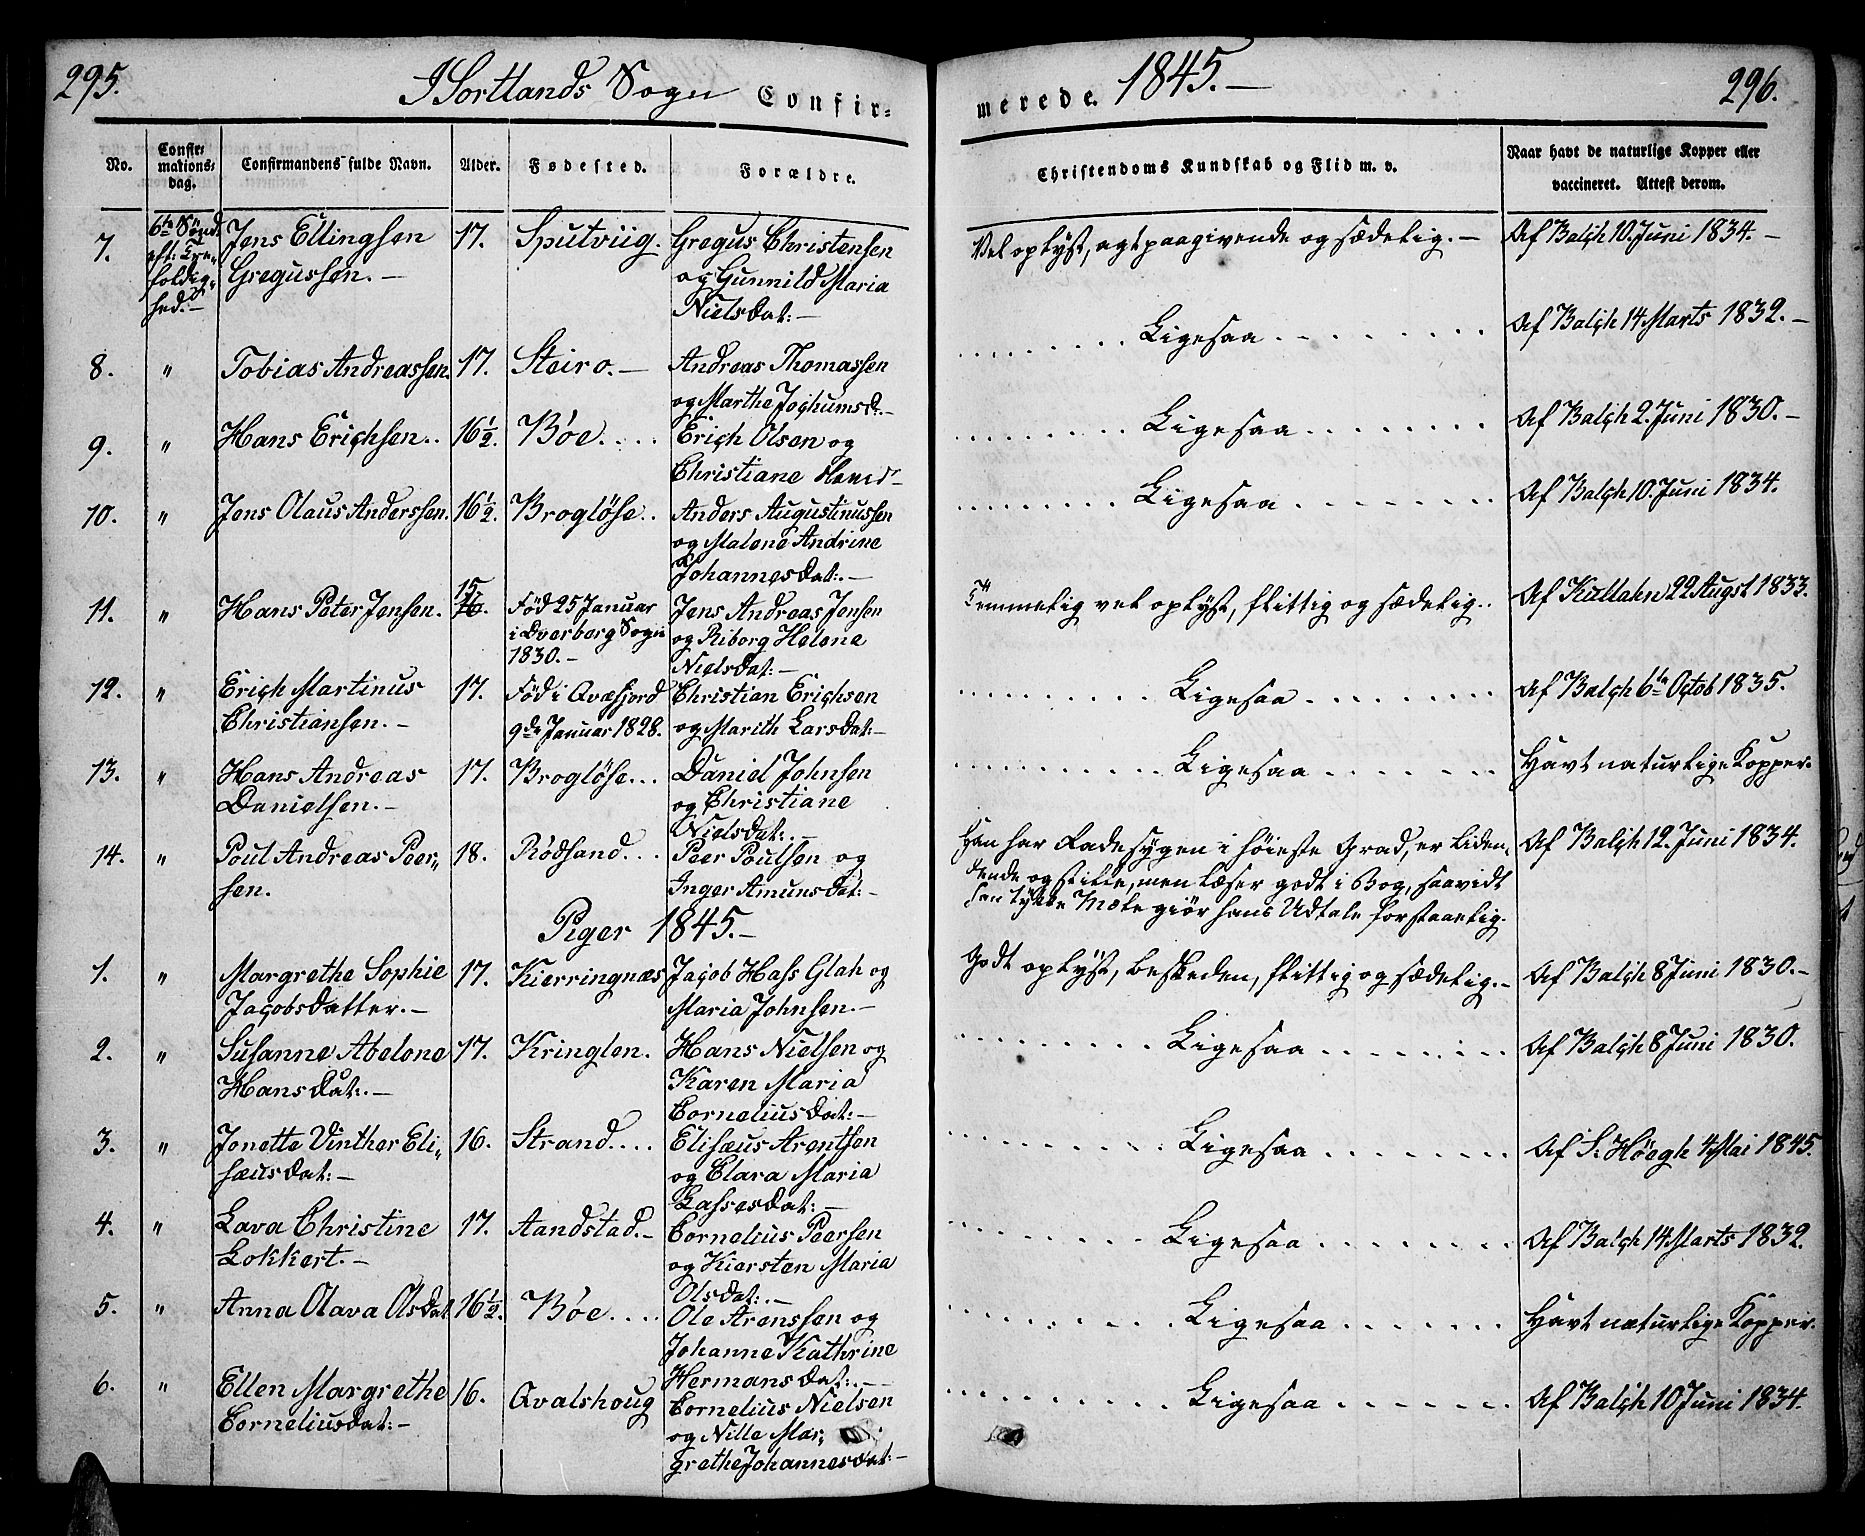 295.
I Sortlands Sogn Confir-
merede. 1845.-
296.
No.
Confir-
mations-
dag.
Confirmandens fulde Navn.
Alder.
Fødested.
Forældre.
Christendoms Kundskab og Flid m. v.
Naar havt de naturlige Kopper eller
vaccineret. Attest derom.
7.
6te Sönd.
eft: Tre-
foldig-
hed.-
Jens Ellingsen
Gregussen.-
17.
Sputviig.
Gregus Christensen
og Gunnild Maria
Nielsdat:-
Vel oplyst, agtpaagivende og sædelig.-
Af Balch 10. Juni 1834.-
8.
"
Tobias Andreassen.
17.
Steiro.-
Andreas Thomassen
og Marthe Jochumsd:-
Ligesaa
Af Balch 14 Marts 1832.-
9.
"
Hans Erichsen..
16½.
Bøe....
Erich Olsen og
Christiane
Ligesaa
Af Balch 2. Juni 1830.-
10.
"
Jens Olaus Anderssen.
16½.
Brogløse..
Anders Augustinussen
og Malene Andrine
Johannesdat:-
Ligesaa
Af Balch 10. Juni 1834.
11.
"
Hans Peter Jensen.
15
16.
Fød 25 Januar
i Dverberg Sogn
1830.-
Jens Andreas Jensen
og Riborg Helene
Nielsdat:-
Temmelig vel oplyst, flittig og sædelig..
Af Kullahn 22 Augst 1833.
12.
"
Erich Martinus
Christiansen.-
17.
Fød i Qvæfjord
9de Januar 1828.
Christian Erichsen
og Marith Larsdat:-
Ligesaa
Af Balch 6te Octob 1835.
13.
"
Hans Andreas
Danielsen.-
17.
Brogløse...
Daniel Johnsen
og Christiane
Nielsdat:-
Ligesaa
Havt naturlige Kopper.
14.
"
Poul Andreas Peer-
sen.
18.
Rödsand...
Peer Poulsen og
Inger Amunsdat:-
Han har Radesygen i høieste Grad, er liden-
dende og stille, men læser godt i Bog, saavidt
han tykke Mæle giør hans Udtale forstaaelig.
Af Balch 12. Juni 1834.
Piger 1845.-
1.
"
Margrethe Sophie
Jacobsdatter.-
17.
Kierringnæs
Jacob Hass Glah og
Maria Johnsen.-
Godt oplyst, beskeden, flittig og sædelig.-
Af Balch 8 Juni 1830.-
2.
"
Susanne Abelone
Hansdat:-
17.
Kringlen.
Hans Nielsen og
Karen Maria
Corneliusdat:-
Ligesaa
Af Balch 8 Juni 1830.
3.
"
Jonette Vinther Eli-
sæusdat:-
16.
Strand....
Elisæus Arentsen
og Clara Maria
Lassesdat:-
Ligesaa
Af S. Høegh 4 Mai 1845.
4.
"
Lava Christine
Lokkert.-
17.
Aandstad.-
Cornelius Peersen
og Kiersten Maria
Olsdat:-
Ligesaa
Af Balch 14 Marts 1832.
5.
"
Anna Olava Olsdat
16½.
Bøe....
Ole Arenssen og
Johanne Kathrine
Hermansdat:-
Ligesaa
Havt naturlige Kopper.
6.
"
Ellen Margrethe
Corneliusdat:-
16.
Qvalshoug
Cornelius Nielsen
og Nille Mar-
grethe Johannesdat:-
Ligesaa
Af Balch 10 Juni 1834.